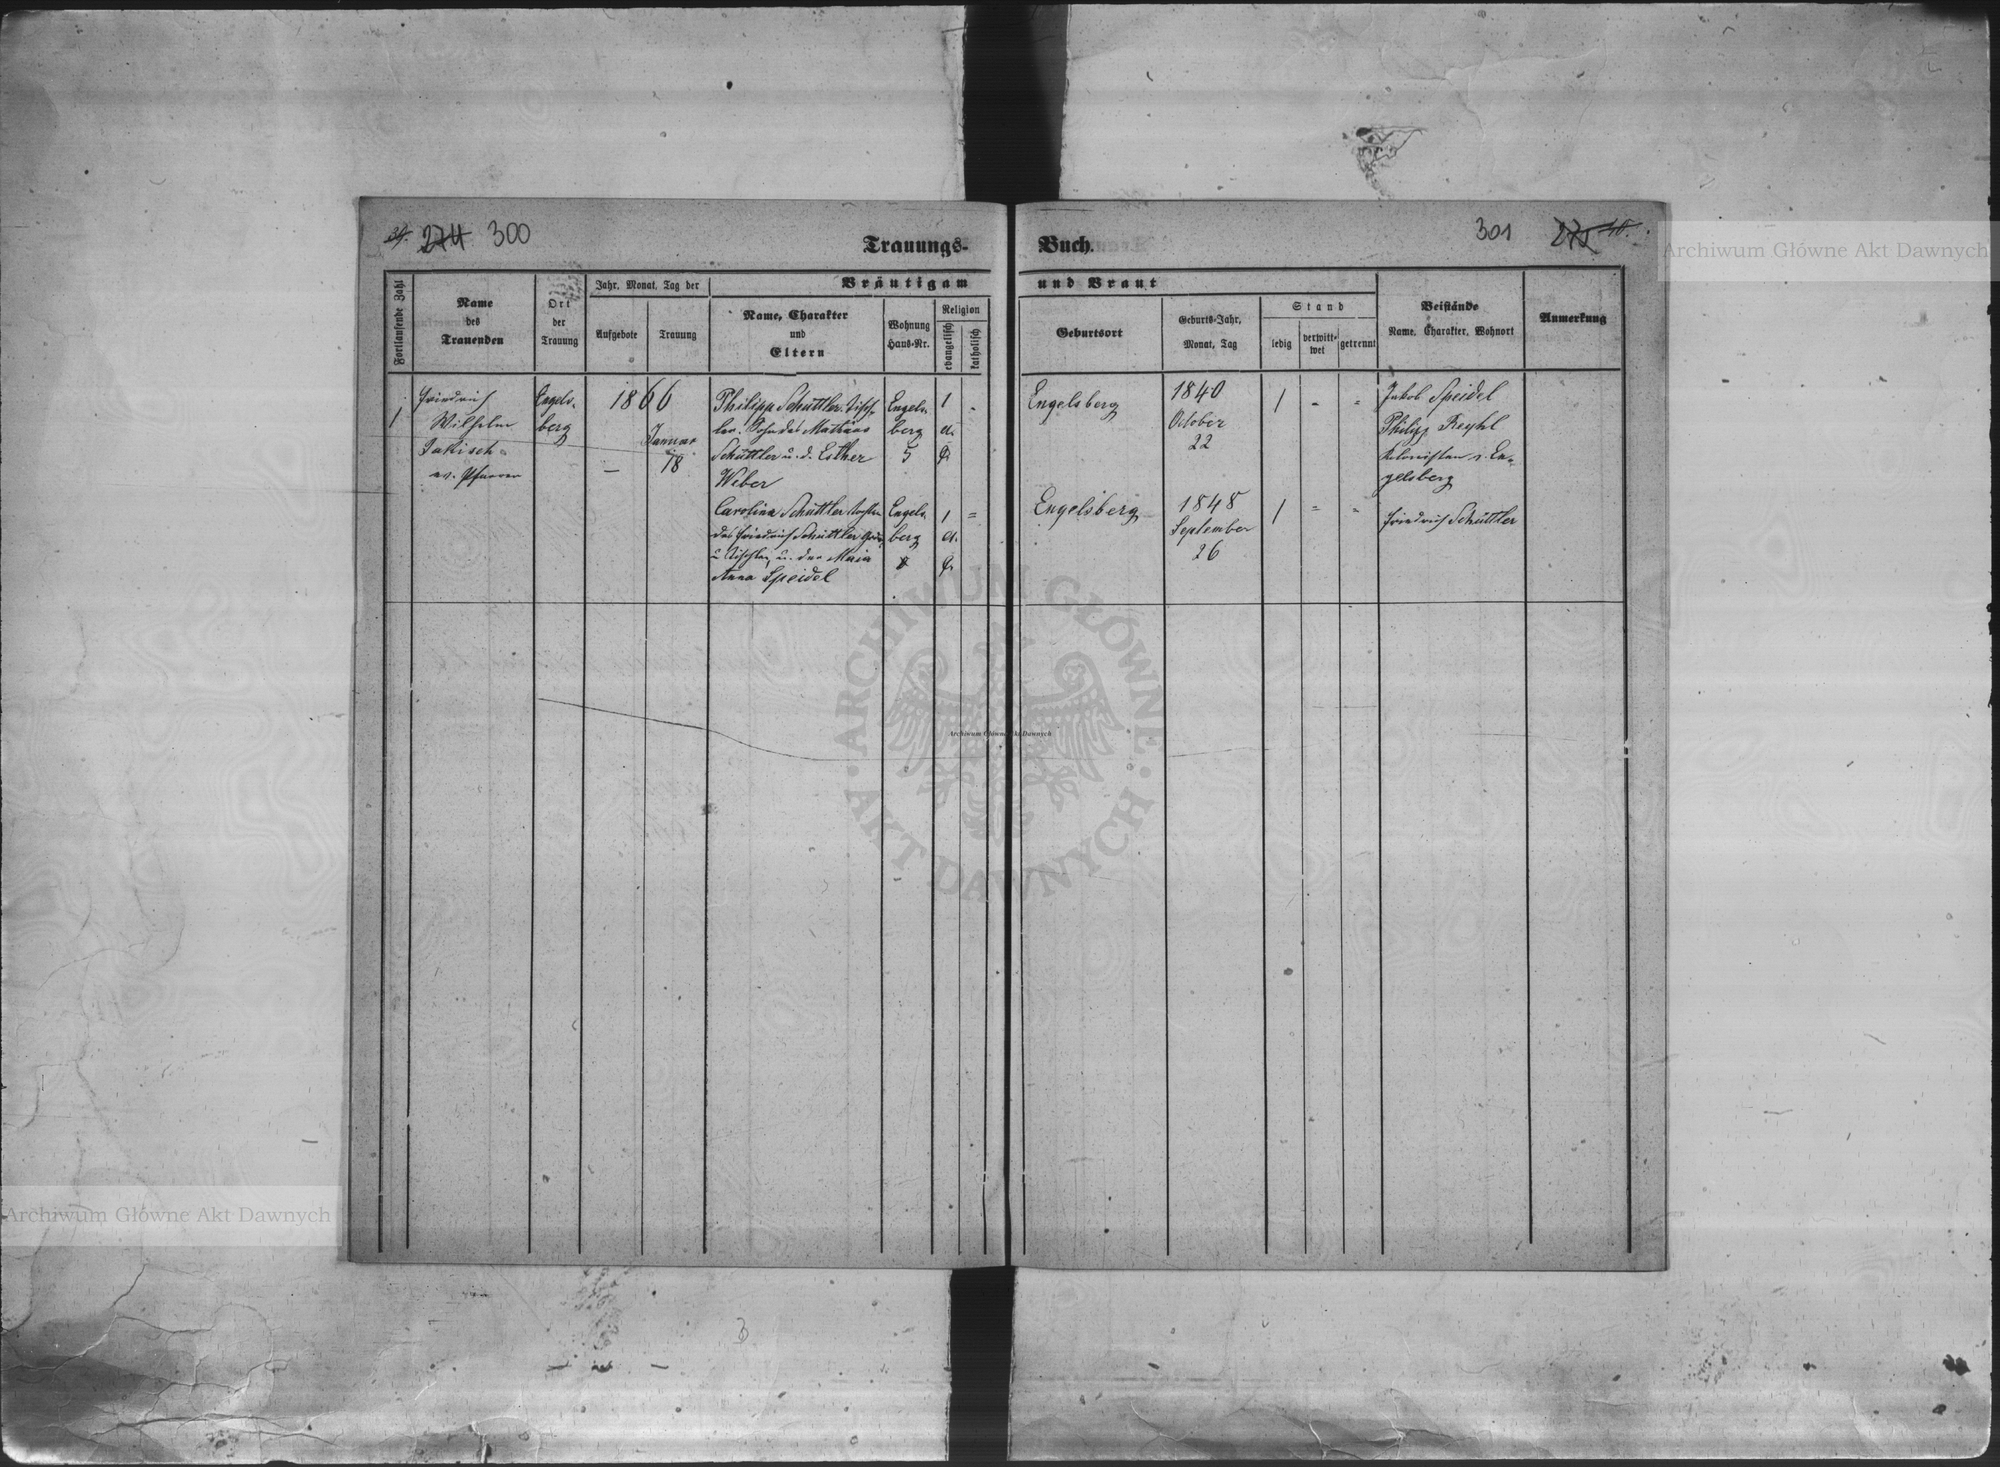 39. 274 300
Trauungs-
Buch.
301 275 40.
Fortlaufende Zahl
Name
des
Trauenden
Ort
der
Trauung
Jahr, Monat, Tag der
Aufgebote
Trauung
Bräutigam
Name, Charakter
und
Eltern
Wohnung
Haus-Nr.
Religion
evangelisch
katholisch
und Braut
Geburtsort
Geburts-Jahr,
Monat, Tag
Stand
ledig
verwitt-
wet
getrennt
Beistände
Name, Charakter, Wohnort
Anmerkung
1
Friedrich
Wilhelm
Jakisch
ev. Pfarrer
Engels-
berg
1866
–
Januar
18
Philipp Schüttler Tisch-
ler. Sohn des Mathäus
Schüttler u. d. Esther
Weber
Engels-
berg
5
1
-
Engelsberg
1840
October
22
1 - -
Jakob Speidel
Philipp Reyhl
Kolonisten v. En-
gelsberg
Carolina Schüttler Tochter
des Friedrich Schüttler
u. Tischler u. der Maria
Anna Speidel
Engels-
berg
1
=
Engelsberg
1848
September
26
1 = =
Friedrich Schüttler
Archiwum Główne Akt Dawnych
Archiwum Główne Akt Dawnych
ARCHIWUM GŁÓWNE AKT DAWNYCH
Archiwum Główne Akt Dawnych